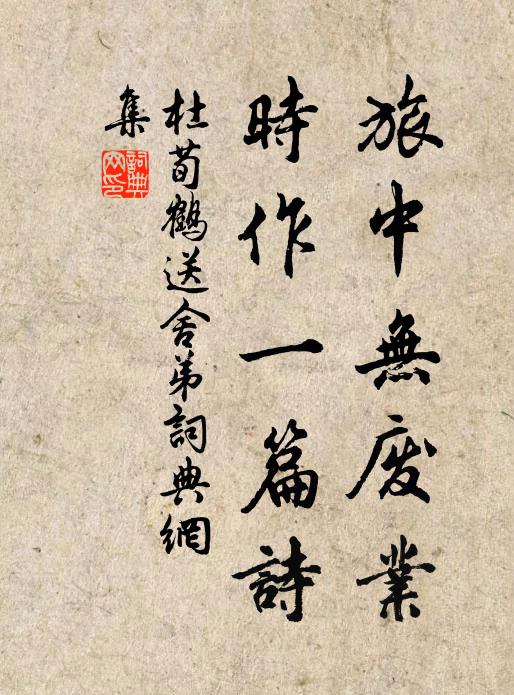 旅中無廢業
時作一篇詩
杜荀鶴送舍弟詞典網
集
詞典
网印